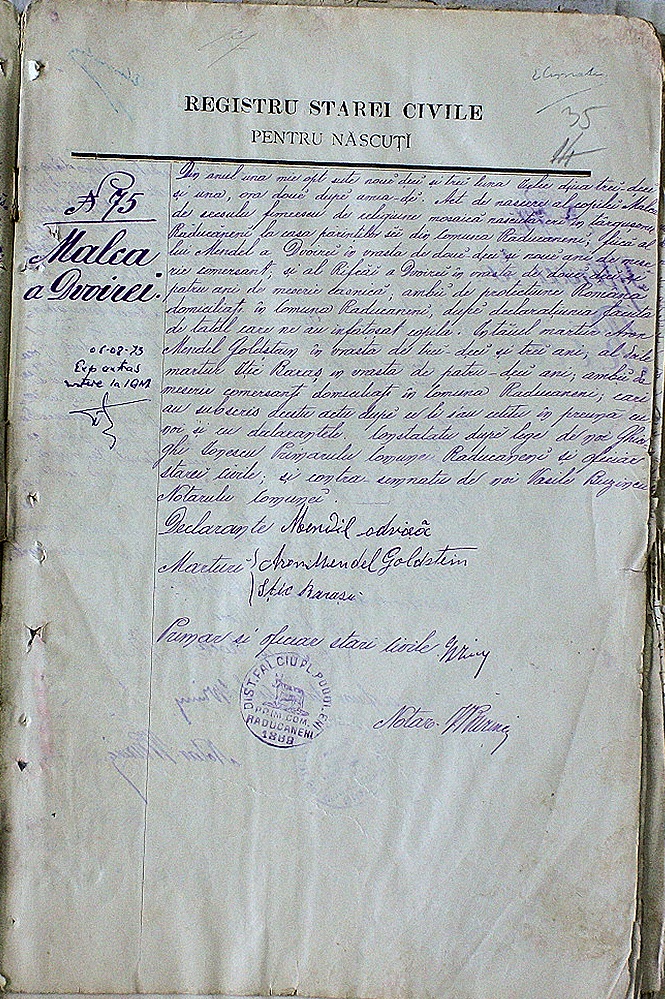 35
REGISTRU STAREI CIVILE
PENTRU NĂSCUȚĬ
N 75
Malca
a Dvoirei.
Din anul una mie opt sute noue deci si trei luna Iulie diua trei-deci
si una, ora doue dupe amea-di. Act de nascere al copilei Malca
de secsulu femeescu de religiune mosaică nascută eri in târgusorul
Raducaneni la casa parintilor sĕi din Comuna Raducaneni, fiica al
lui Mendel a Dvoirei in vrasta de doue deci si noue ani de mese-
rie comersant, si al Refcăi a Dvoirei in vrasta de doue deci si
patru ani de meserie casnică, ambii de protectiune Română
domiciliati in Comuna Raducaneni, dupe declaratiunea facuta
de tatăl care ne au infatosat copila. Intâiul martur Aron
Mendel Goldstein in vrasta de trei-deci si trei ani, al doile
martur Stic Baraș in vrasta de patru-deci ani, ambii de
meserie comersanti domiciliati in Comuna Raducaneni, cari
au subscris acestu actu dupe ce li s'au cetitu in preună cu
noi si cu declarantele. Constatatu dupe lege de noi Ghior
ghi Ionescu Primarulu Comunei Raducaneni si oficiar
starei civile, si contra semnatu de noi Vasile Buzincu
Notarulu Comunei.
08-08-73
Declarante Mendil
Marturi Aron Mendel Goldstein
Stic
Primar si oficiar stari civile
DIST. FALCIU PL. PODOLENI
PRIM. COM.
RADUCANENI
1888
Notar